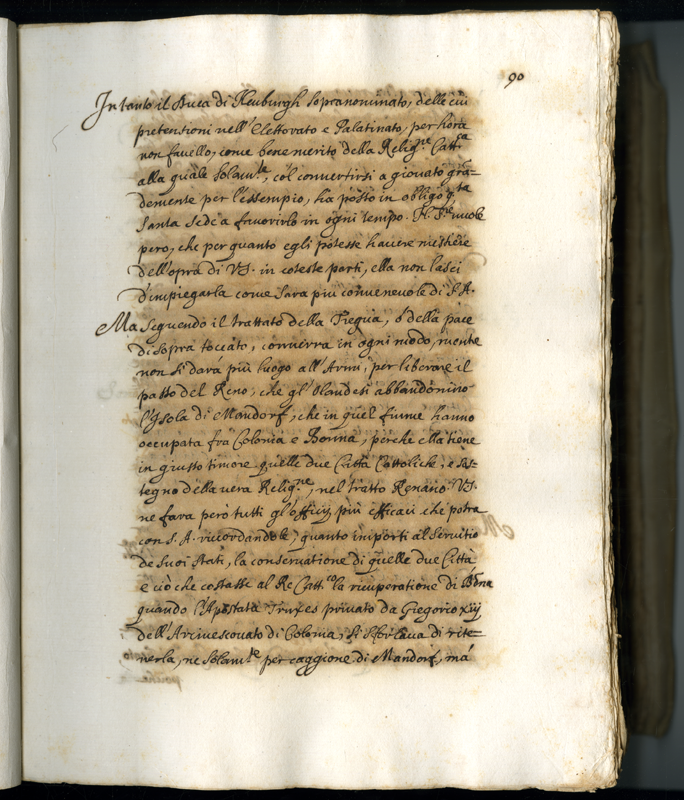 90
In tanto il Duca di Neuburgh sopranominato, delle cui
pretentioni nell'Elettorato e Palatinato, per hora
non favello, come benemerito della Relig.ne Catt.ca
alla quale solam.te, col convertirsi a giovato gra-
demente per l'essempio, ha posto in obligo q.ta
Santa Sede a favorirlo in ogni tempo. N. S.re vuole
però, che per quanto egli potesse havere mestiere
dell'opra di VS. in coteste parti, ella non lasci
d'impiegarla come sara più convenevole di S. A.
Ma seguendo il trattato della Tregua, ò della pace
di sopra toccato, converra in ogni modo, mentre
non si darà più luogo all'Armi, per liberare il
passo del Reno, che gl'Olandesi abbandonino
l'Isola di Mandorf, che in quel fiume hanno
occupata fra Colonia e Bonna, perche ella tiene
in giusto timore quelle due Città Cattoliche, e sos-
tegno della vera Relig.ne, nel tratto Renano. VS.
ne farà però tutti gl'officij più efficaci che potrà
con S. A. ricordandole, quanto importi al servitio
de suoi stati, la conservatione di quelle due Città
e ciò che costasse al Re Catt.co la ricuperatione di Bona
quando l'Apostata Truxes privato da Gregorio xiij
dell'Arcivescovato di Colonia, si sforzava di rite-
nerla, ne solam.te per caggione di Mandorf, mà